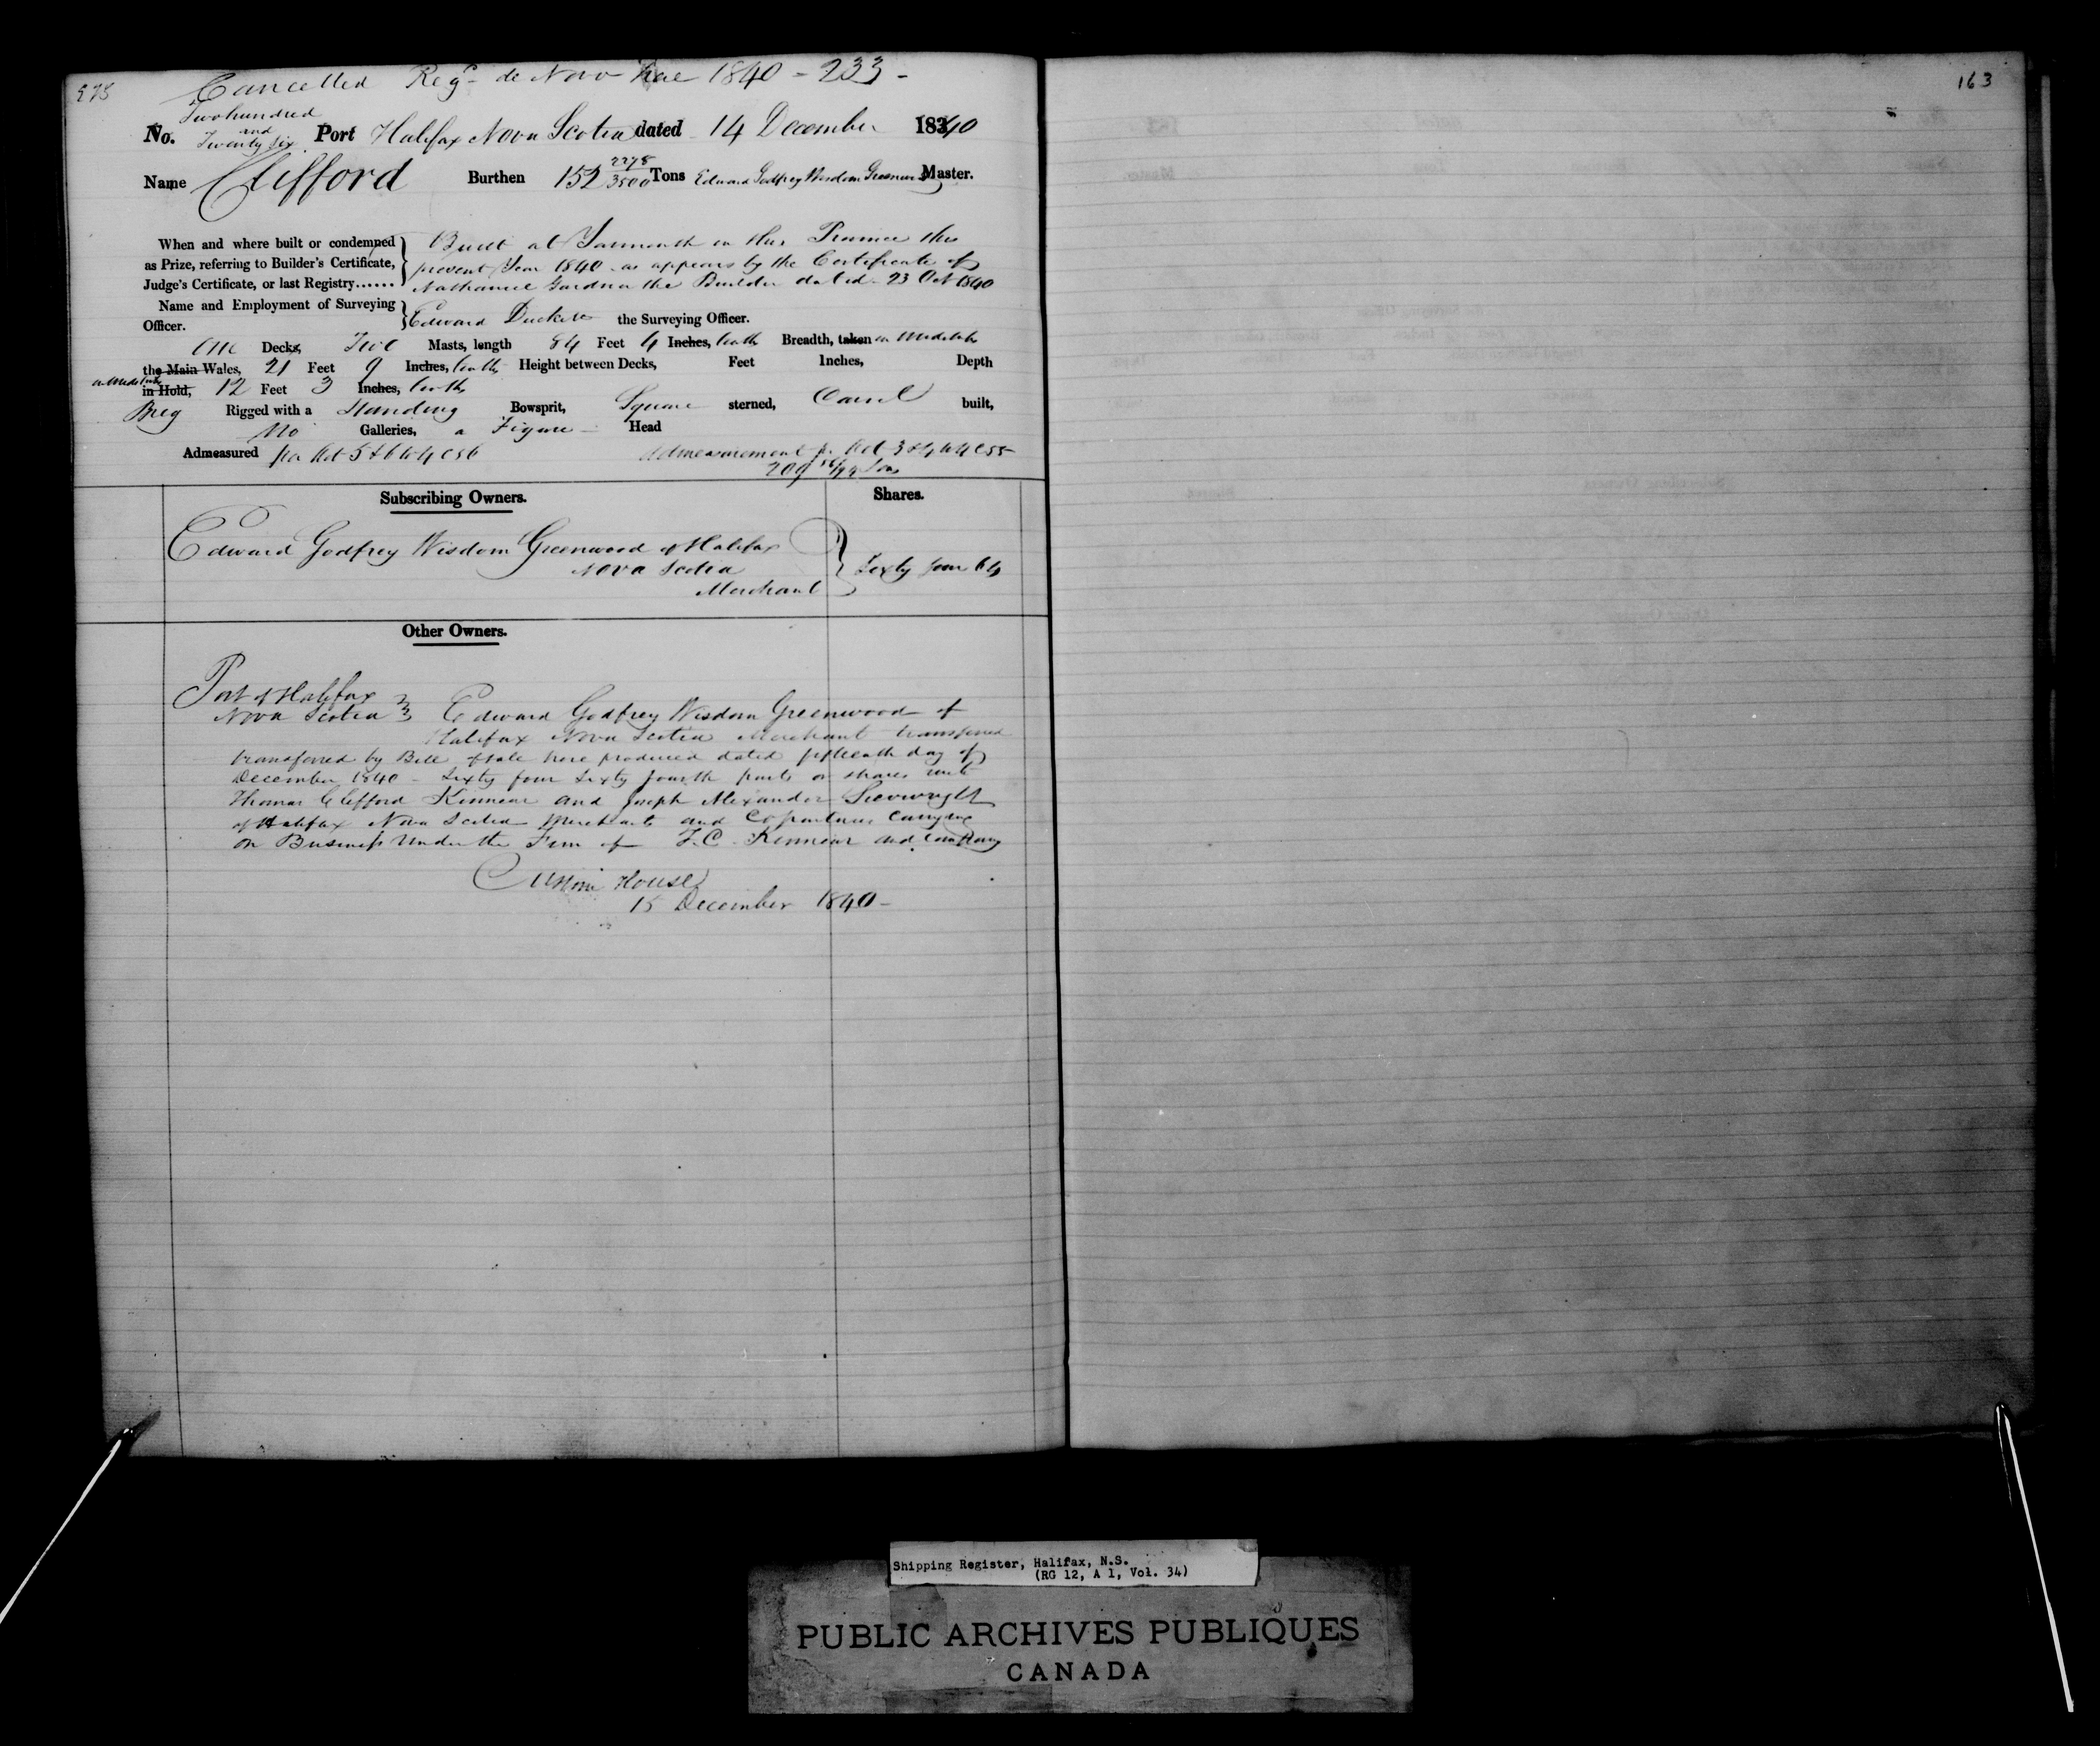 Cancelled Regd de Novo Hae 1840 - 233 -
163
No. Two hundred and Twenty six Port Halifax Nova Scotia dated 14 December 1840
Name Clifford Burthen 152 2278/3500 Tons Edward Godfrey Wisdom Greenwood Master.
When and where built or condemned
as Prize, referring to Builder's Certificate,
Judge's Certificate, or last Registry......
Built at Yarmouth in this Province this
present Year 1840 as appears by the Certificate of
Nathaniel Gardner the Builder dated 23 Oct 1840
Name and Employment of Surveying
Officer.
Edward Duckett the Surveying Officer.
One Decks, Two Masts, length 84 Feet 4 Inches, tenths Breadth, taken in Midships
the Main Wales, 21 Feet 9 Inches, tenths Height between Decks, Feet Inches, Depth
in Midships in Hold, 12 Feet 3 Inches, tenths
Brig Rigged with a Standing Bowsprit, Square sterned, Carvel built,
No Galleries, a Figure Head
Admeasured per Act 5 & 6 W 4 C 56 Admeasurement pr Act 3 & 4 W 4 C 55
209 Tons
Subscribing Owners. Shares.
Edward Godfrey Wisdom Greenwood of Halifax
Nova Scotia
Merchant
Sixty four 64
Other Owners.
Port of Halifax
Nova Scotia
Edward Godfrey Wisdom Greenwood of
Halifax Nova Scotia Merchant transferred
transferred by Bill of Sale here produced dated fifteenth day of
December 1840 - Sixty four Sixty fourth parts or shares unto
Thomas Clifford Kinnear and Joseph Alexander Sievwright
of Halifax Nova Scotia Merchants and Copartners Carrying
on Business Under the Firm of T. C. Kinnear and Company
Custom House
15 December 1840 -
Shipping Register, Halifax, N.S.
(RG 12, A 1, Vol. 34)
PUBLIC ARCHIVES PUBLIQUES
CANADA